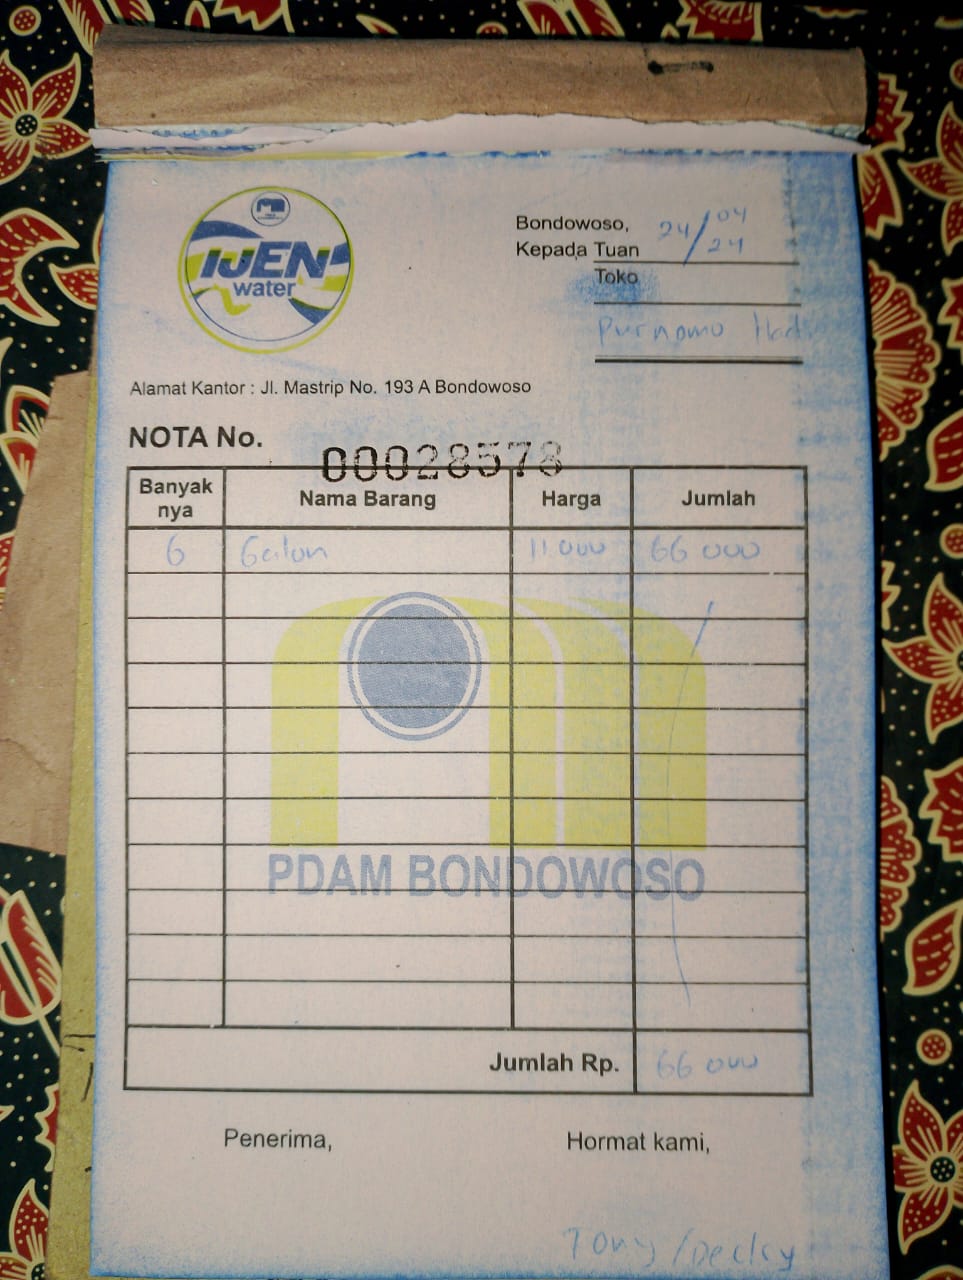 IJEN
water
Bondowoso, 24/04/24
Kepada Tuan
Toko
Purnomo Hadi
Alamat Kantor : Jl. Mastrip No. 193 A Bondowoso
NOTA No. 00028578
Banyak nya Nama Barang Harga Jumlah
6 Galon 11 000 66 000
PDAM BONDOWOSO
Jumlah Rp. 66 000
Penerima, Hormat kami,
Tony / Decky